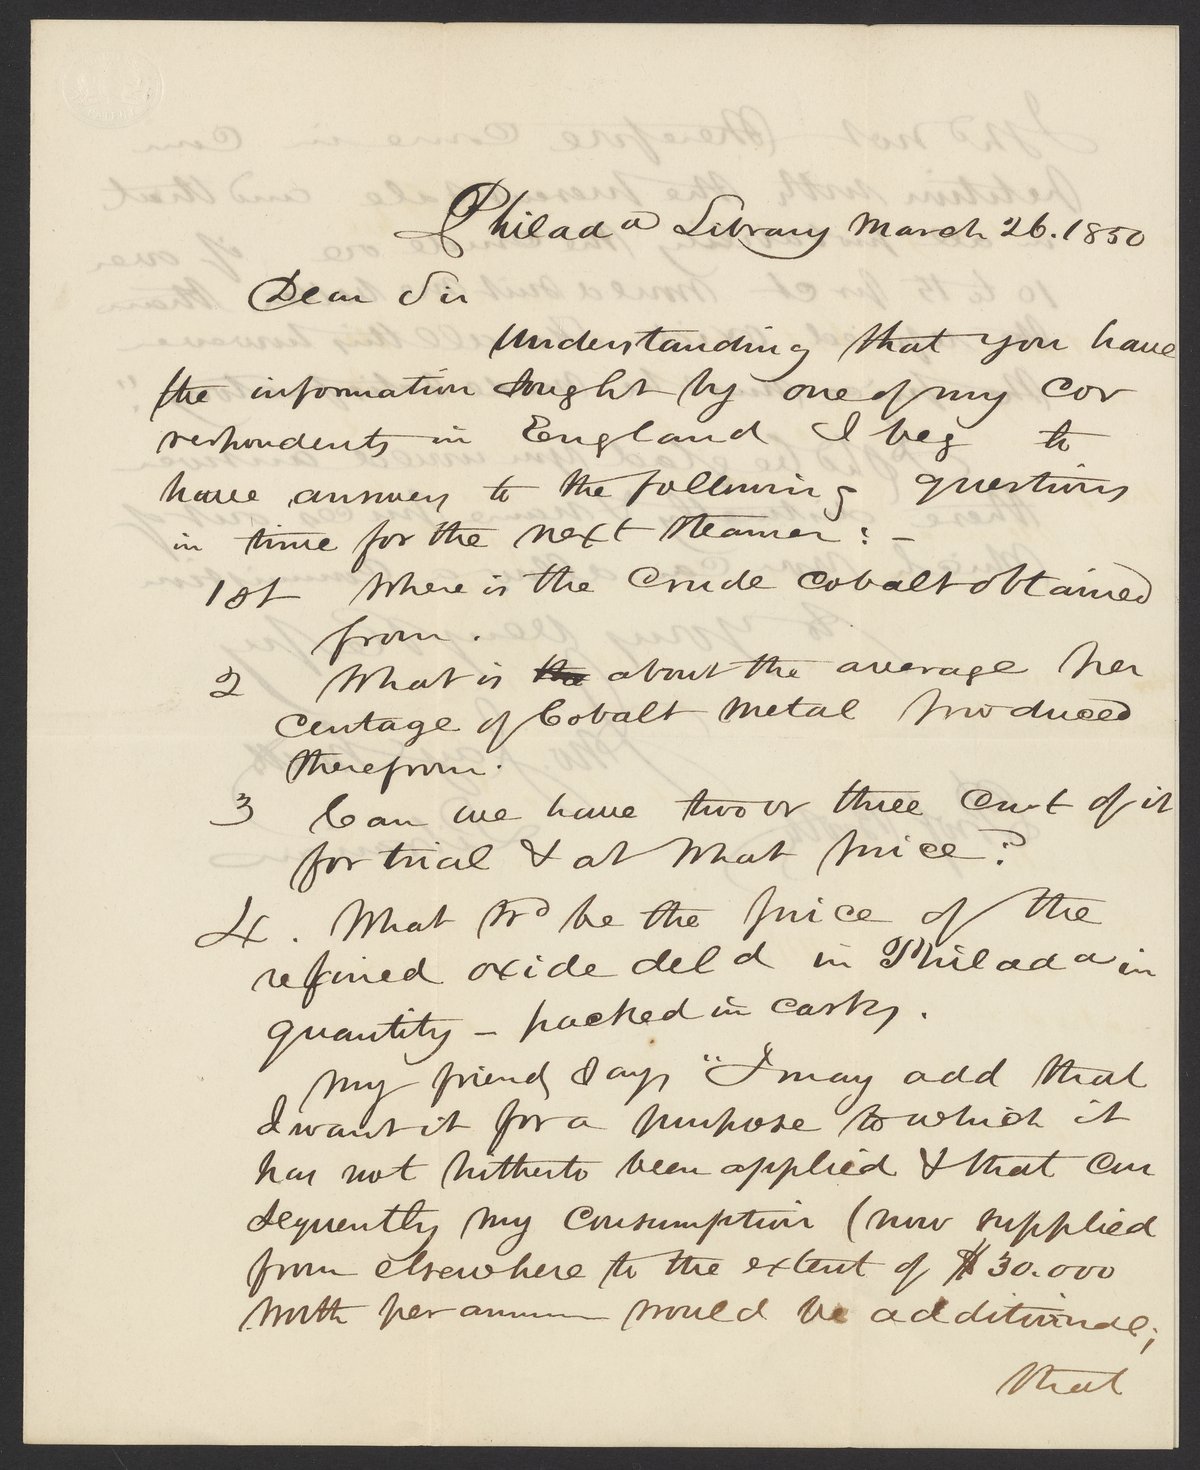 Philad a Library March 26. 1850
Dear Sir
Understanding that you have
the information sought by one of my cor
respondents in England I beg to
have answers to the following questions
in time for the next steamer : -
1st Where is the Crude cobalt obtained
from .
2 What is the about the average per
centage of Cobalt metal produced
therefrom .
3 Can we have two or three Cwt of it
for trial & at what price ?
4 . What wd be the price of the
refined oxide del d in Philad a in
quantity - packed in casks .
My friend says "I may add that
I want it for a purpose to which it
has not hitherto been applied & that con
sequently my consumption (now supplied
from elsewhere to the extent of $30.000
worth per annum would be additional ;
that